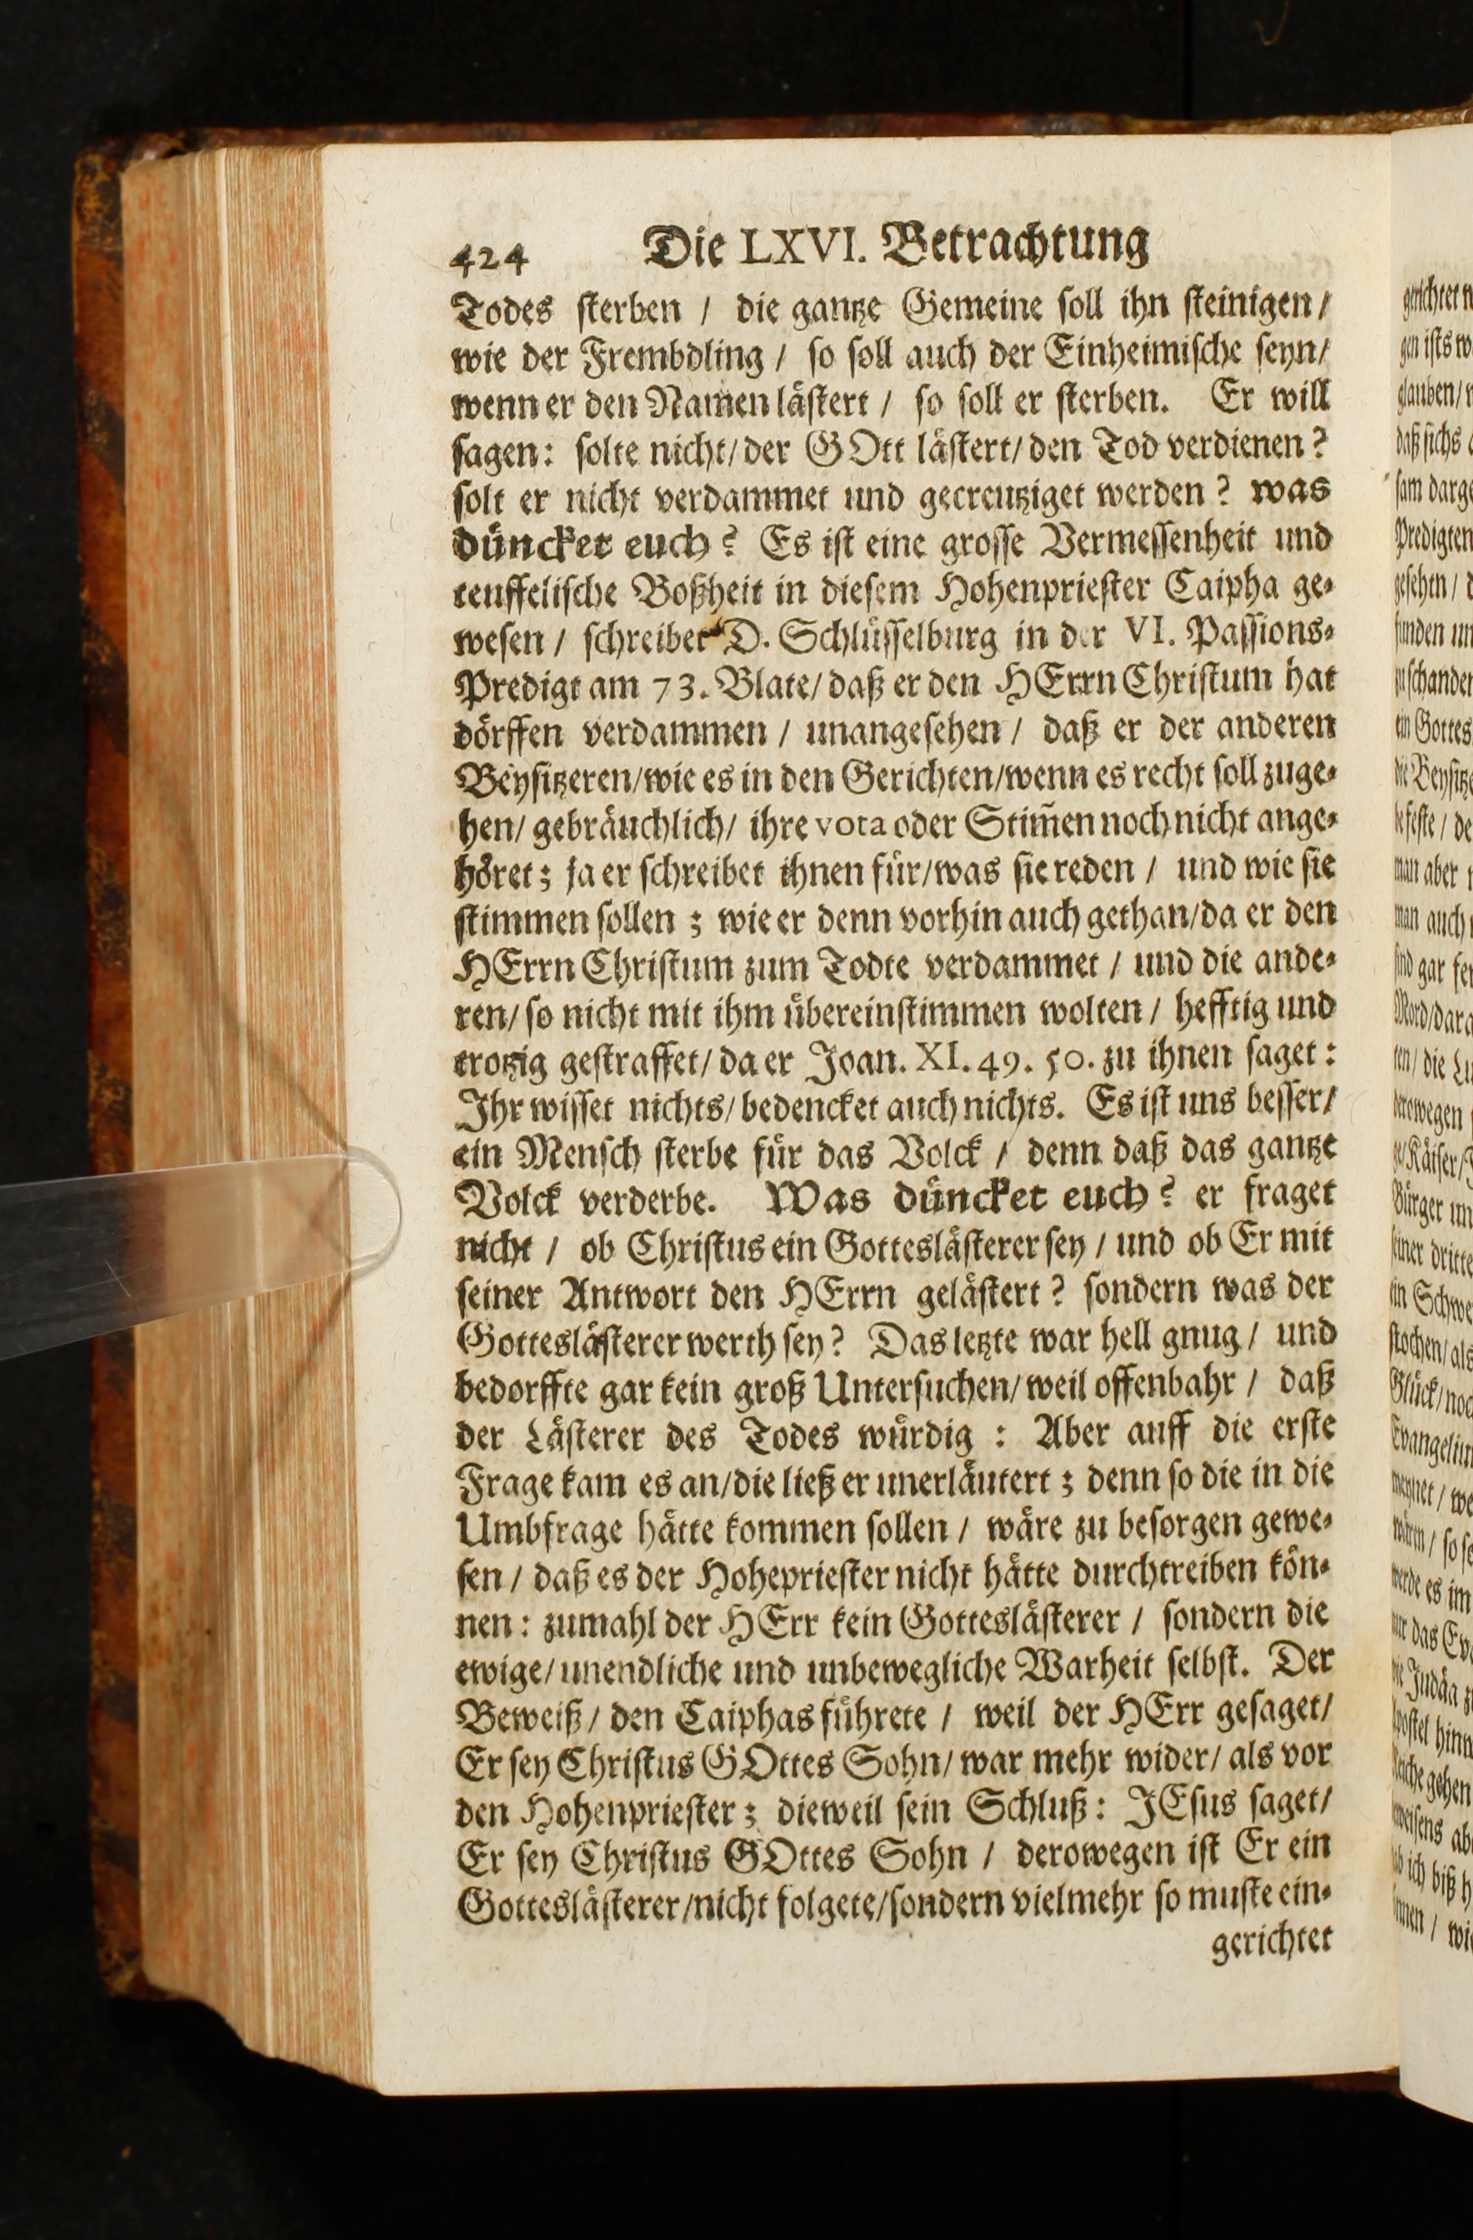 424 Die LXVI. Betrachtung
Todes sterben / die gantze Gemeine soll ihn steinigen /
wie der Frembdling / so soll auch der Einheimische seyn /
wenn er den Namen lästert / so soll er sterben. Er will
sagen: solte nicht / der GOtt lästert / den Tod verdienen?
solt er nicht verdammet und gecreutziget werden? was
düncket euch? Es ist eine grosse Vermessenheit und
teuffelische Boßheit in diesem Hohenpriester Caipha ge-
wesen / schreibet D. Schlüsselburg in der VI. Passions-
Predigt am 73. Blate / daß er den HErrn Christum hat
dörffen verdammen / unangesehen / daß er der anderen
Beysitzeren / wie es in den Gerichten / wenn es recht soll zuge-
hen / gebräuchlich / ihre vota oder Stim̃en noch nicht ange-
höret; ja er schreibet ihnen für / was sie reden / und wie sie
stimmen sollen; wie er denn vorhin auch gethan / da er den
HErrn Christum zum Todte verdammet / und die ande-
ren / so nicht mit ihm übereinstimmen wolten / hefftig und
trotzig gestraffet / da er Joan. XI. 49. 50. zu ihnen saget:
Ihr wisset nichts / bedencket auch nichts. Es ist uns besser /
ein Mensch sterbe für das Volck / denn daß das gantze
Volck verderbe. Was düncket euch? er fraget
nicht / ob Christus ein Gotteslästerer sey / und ob Er mit
seiner Antwort den HErrn gelästert? sondern was der
Gotteslästerer werth sey? Das letzte war hell gnug / und
bedorffte gar kein groß Untersuchen / weil offenbahr / daß
der Lästerer des Todes würdig: Aber auff die erste
Frage kam es an / die ließ er unerläutert; denn so die in die
Umbfrage hätte kommen sollen / wäre zu besorgen gewe-
sen / daß es der Hohepriester nicht hätte durchtreiben kön-
nen: zumahl der HErr kein Gotteslästerer / sondern die
ewige / unendliche und unbewegliche Warheit selbst. Der
Beweiß / den Caiphas führete / weil der HErr gesaget /
Er sey Christus GOttes Sohn / war mehr wider / als vor
den Hohenpriester; dieweil sein Schluß: JEsus saget /
Er sey Christus GOttes Sohn / derowegen ist Er ein
Gotteslästerer / nicht folgete / sondern vielmehr so muste ein-
gerichtet